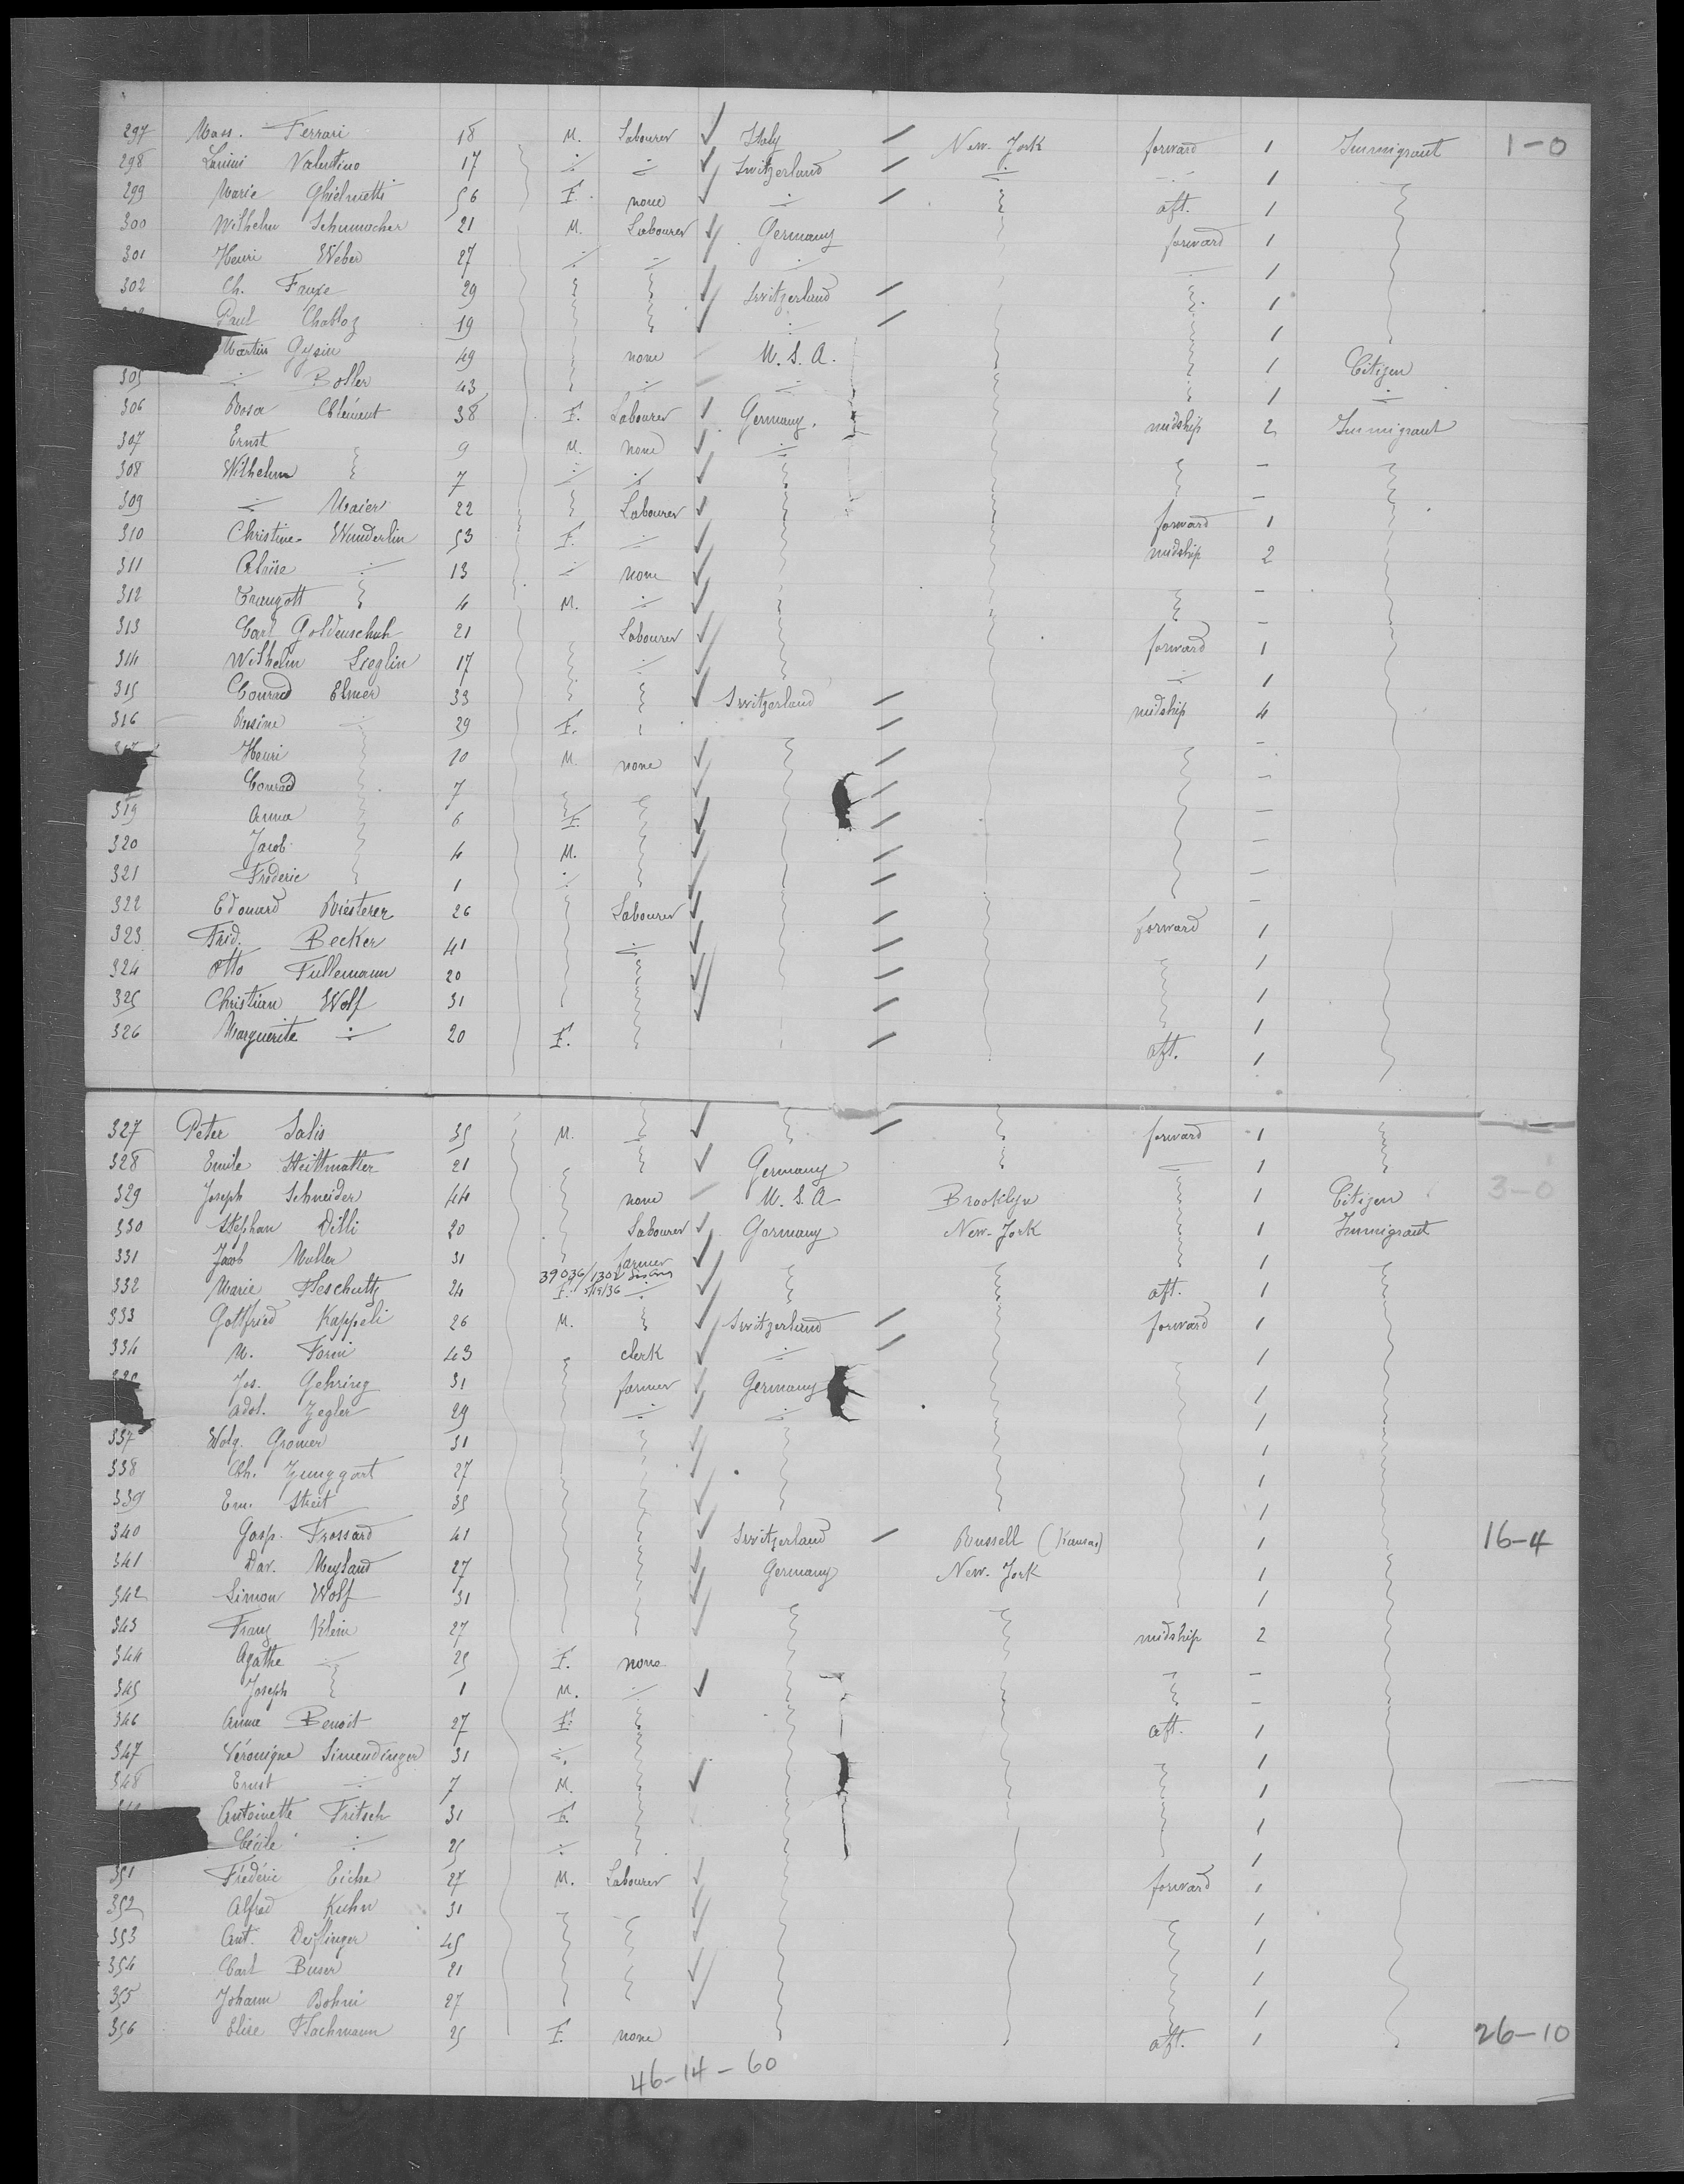 297 Mass. Ferrari 18 M. Labourer Italy New-York forward 1 Immigrant 1-0
298 Valentino 17 ÷ ÷ Switzerland ÷ ÷ 1
299 Marie Ghielmetti 56 F. none ÷ aft. 1
300 Wilhelm Schumacher 21 M. Labourer Germany forward 1
301 Henri Weber 27 ÷ ÷ ÷ ÷ 1
302 Ch. Fauxe 29 Switzerland 1
Paul Chabloz 19 ÷ 1
Martin Gysin 49 none U.S.A. 1 Citizen
305 ÷ Boller 43 ÷ ÷ 1 ÷
306 Rosa Clément 38 F. Labourer Germany. midship 2 Immigrant
307 Ernst 9 M. none ÷ -
308 Wilhelm 7 ÷ ÷ -
309 ÷ Maier 22 Labourer forward 1
310 Christine Wunderlin 53 F. ÷ midship 2
311 ÷ 13 ÷ none -
312 Traugott 4 M. ÷ -
313 Carl Goldenschuh 21 Labourer forward 1
314 Wilhelm Sieglin 17 ÷ ÷ 1
315 Conrad Elmer 33 Switzerland midship 4
316 Rosine ÷ 29 F. -
Henri 10 M. none -
Conrad 7 -
319 Anna 6 F. -
320 Jacob 4 M. -
321 Frédéric 1 ÷ -
322 Edouard Riesterer 26 Labourer forward 1
323 Frid. Becker 41 ÷ 1
324 Otto Fullemann 20 1
325 Christian Wolf 31 1
326 Marguerite ÷ 20 F. aft. 1
327 Peter Salis 35 M. forward 1
328 Emile Strittmatter 21 Germany 1
329 Joseph Schneider 44 none U.S.A Brooklyn 1 Citizen 3-0
330 Stephan Dilli 20 Labourer Germany New-York 1 Immigrant
331 Jacob Muller 31 farmer 1
39036/1302
332 Marie Fleschutz 24 F. 5/19/36 ÷ aft. 1
333 Gottfried Kappeli 26 M. Switzerland forward 1
334 M. 43 clerk ÷ 1
Jos. Gehring 31 farmer Germany 1
Adol. Zegler 29 ÷ ÷ 1
337 Wolg. Gromer 31 1
338 Ch. Zunggart 27 1
339 Em. Streit 35 1
340 Gasp. Frossard 41 Switzerland Russell (Kansas) 1 16-4
341 Dav. Meyland 27 Germany New-York 1
342 Simon Wolf 31 1
343 Franz Klein 27 midship 2
344 Agathe ÷ 25 F. none -
345 Joseph 1 M. ÷ -
346 Anna Benoit 27 F. aft. 1
347 Véronique Simendinger 31 ÷ 1
348 Ernst ÷ 7 M. 1
Antoinette Fritsch 31 F. 1
Cécile ÷ 25 ÷ 1
351 Frédéric Eiche 27 M. Labourer forward 1
352 Alfred Kuhn 31 1
353 Ant. Deiflinger 45 1
354 Carl Buser 21 1
355 Johann Bohni 27 1
356 Elise Flachmann 25 F. none aft. 1 26-10
46-14-60